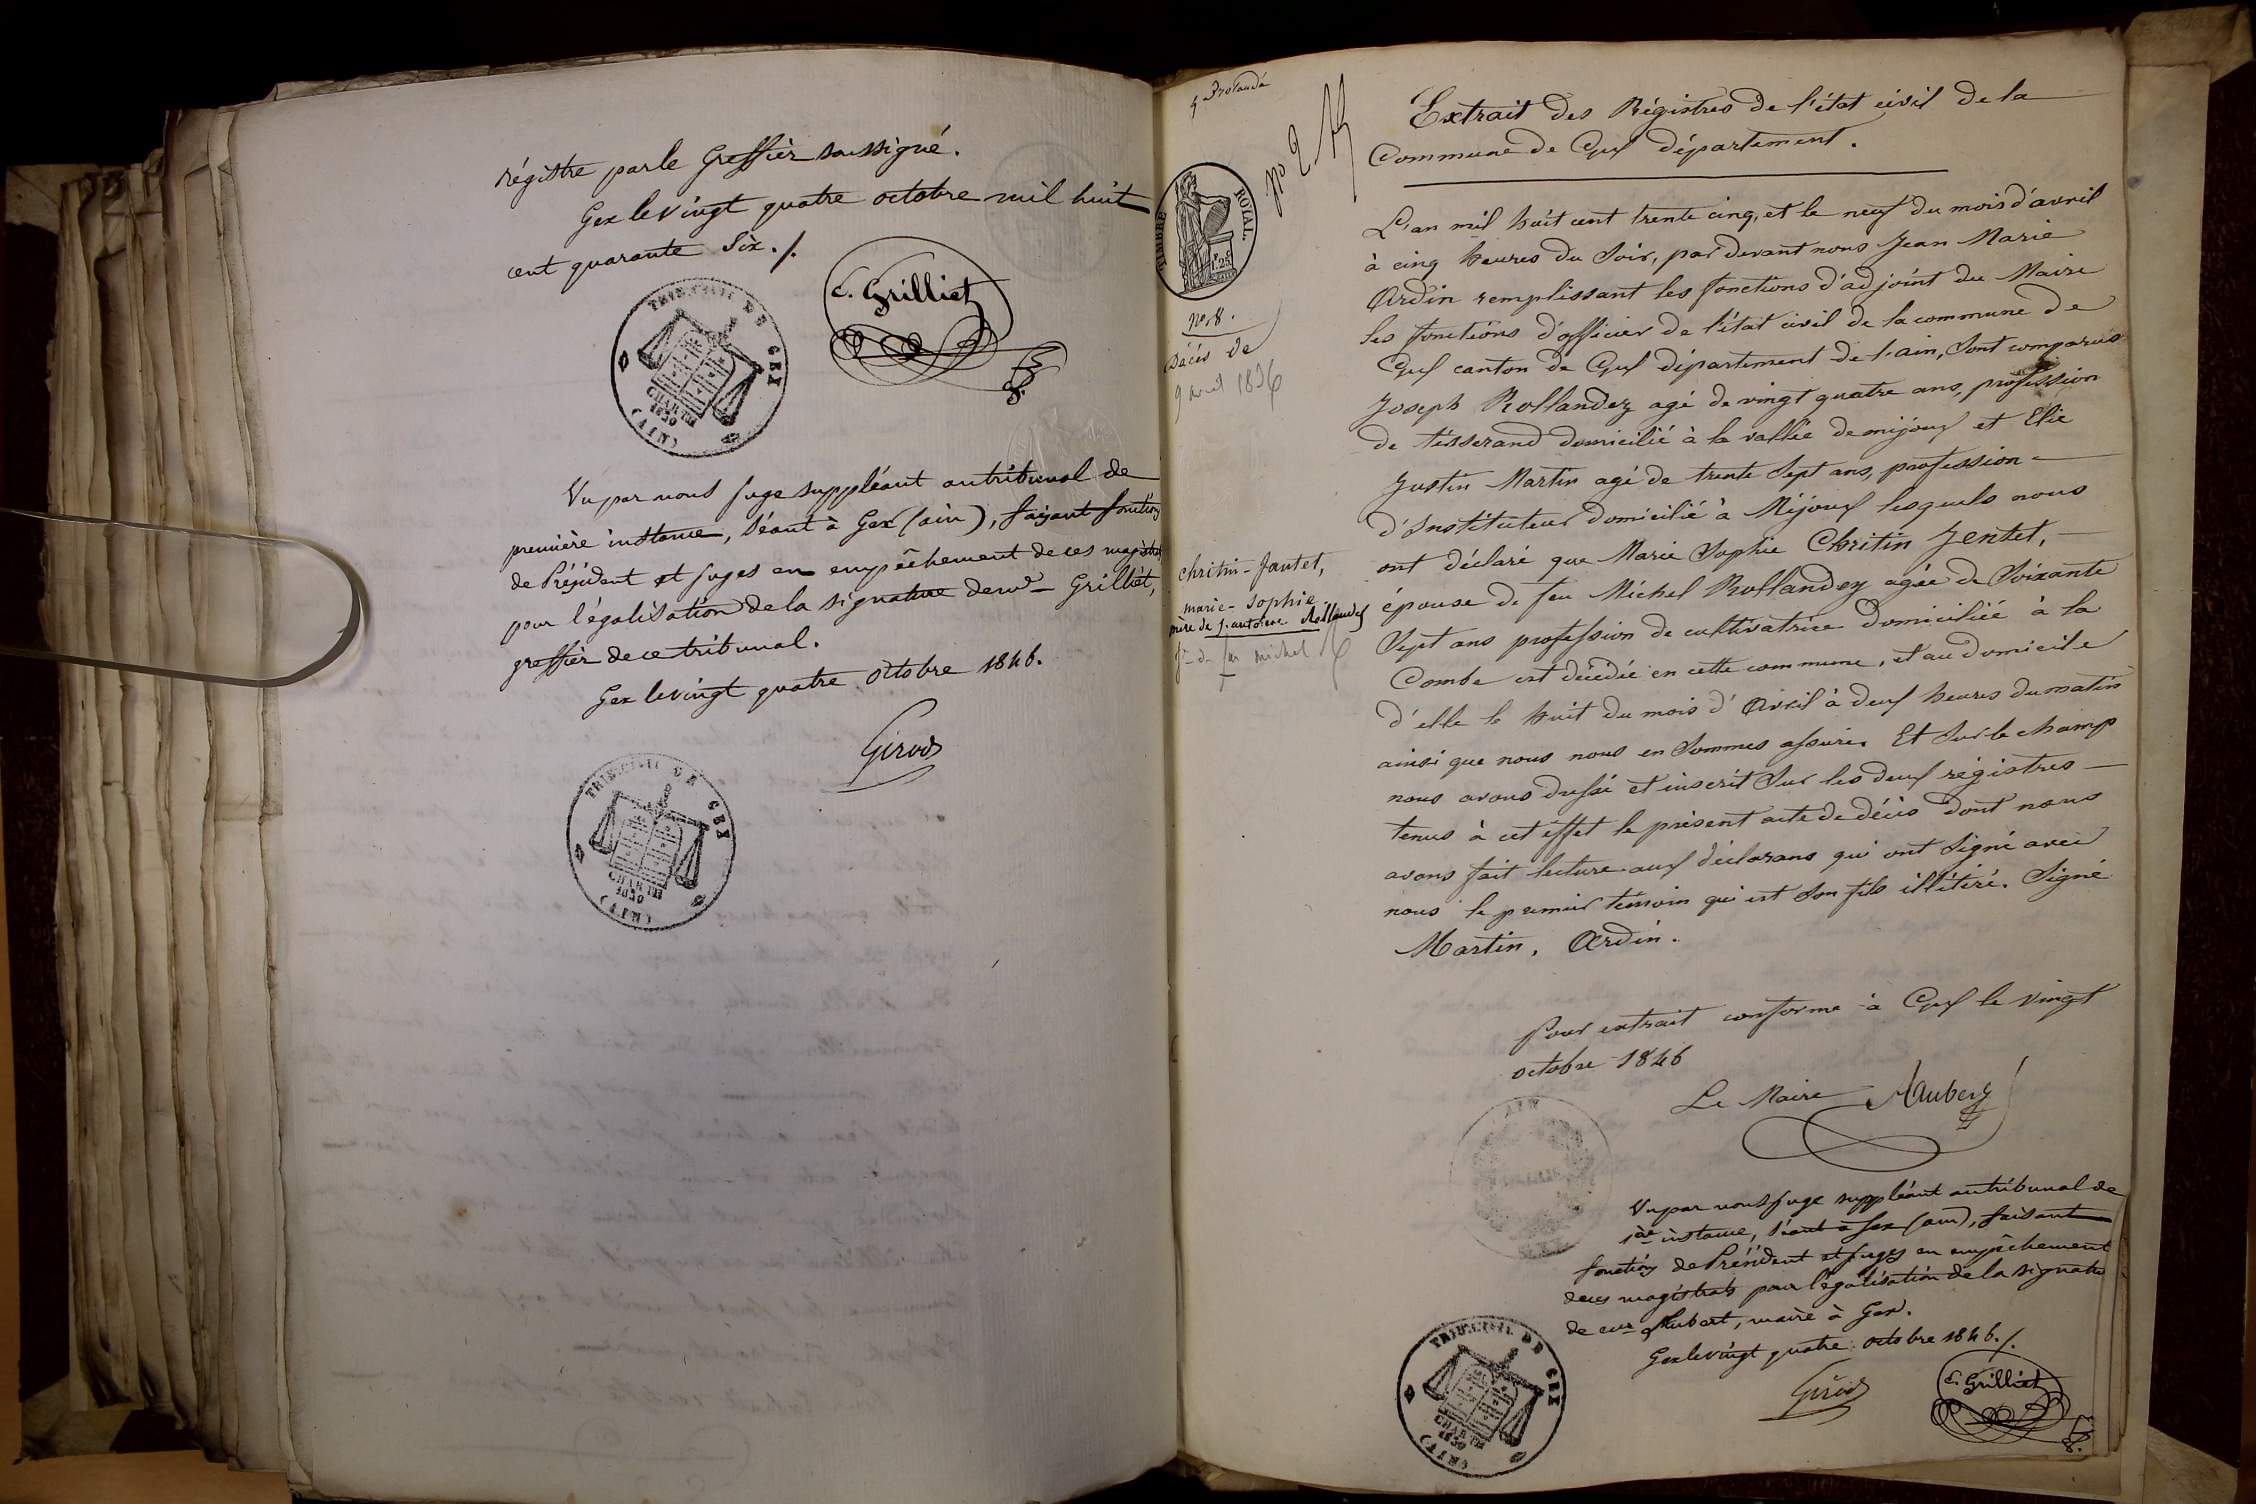 régistre par le Greffier soussigné.
Gex le vingt quatre octobre mil huit
cent quarante six ./.
C. Grilliet
TRIB. CIVIL DE GEX
CHARTE
1830
(AIN)
Vu par nous juge suppléant au tribunal de
première instance, séant à Gex (ain), faisant fonctions
de Président et juges en empêchement de ces magistrats
pour légalisation de la signature de mr Grilliet,
greffier de ce tribunal.
Gex le vingt quatre octobre 1846.
Girod
TRIB. CIVIL DE GEX
CHARTE
1830
(AIN)
No 2
TIMBRE ROYAL.
1F 25C
No 8.
Décès de
9 avril 1836
Chritin-Jantet,
marie-Sophie
mère de j. antoine Rollandez
fe de feu michel
Extrait des Régistres de l'état civil de la
Commune de Gex département.
L'an mil huit cent trente cinq, et le neuf du mois d'avril
à cinq heures du soir, par devant nous Jean Marie
Ardin remplissant les fonctions d'adjoint du Maire
les fonctions d'officier de l'état civil de la commune de
Gex canton de Gex département de l'ain, sont comparus
Joseph Rollandez agé de vingt quatre ans, profession
de tisserand domicilié à la vallée de mijoux et Elie
Justin Martin agé de trente sept ans, profession
d'Instituteur domicilié à Mijoux lesquels nous
ont déclaré que Marie Sophie Chritin Jentet,
épouse de feu Michel Rollandez agée de soixante
sept ans profession de cultivatrice domiciliée à la
Combe est décédée en cette commune, et au domicile
d'elle le huit du mois d'Avril à deux heures du matin
ainsi que nous nous en sommes assuré. Et sur le champ
nous avons dressé et inscrit sur les deux régistres
tenus à cet effet le présent acte de décès dont nous
avons fait lecture aux déclarans qui ont signé avec
nous le premier témoin qui est son fils illétiré. Signé
Martin, Ardin.
Pour extrait conforme à Gex le vingt
octobre 1846
Le Maire Aubert
Vu par nous juge suppléant au tribunal de
1ère instance, séant à Gex (ain), faisant
fonctions de Président et juges en empêchement
de ces magistrats pour légalisation de la signature
de mr Aubert, maire à Gex.
Gex le vingt quatre octobre 1846 ./.
Girod
C. Grilliet
TRIB. CIVIL DE GEX
CHARTE
1830
(AIN)